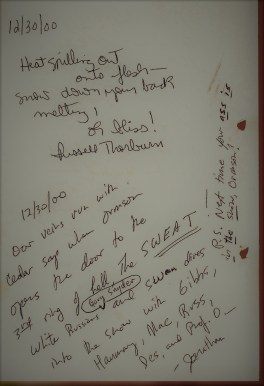 12/30/00
Heat spilling out
onto flesh—
snow down your back
melting,
oh bliss!
Russell Thorburn
12/30/00
Our veins run with
Cedar sap when ormson
opens the door to the
3rd ring of hell The SWEAT
Gary Snyder
White Russians and swan dives
into the snow with Gibbs,
Hanning, Mac, Ross,
Des, and Prof. O—
— Jonathan
P.S. Next time your ass is
in the snow, Ormson!